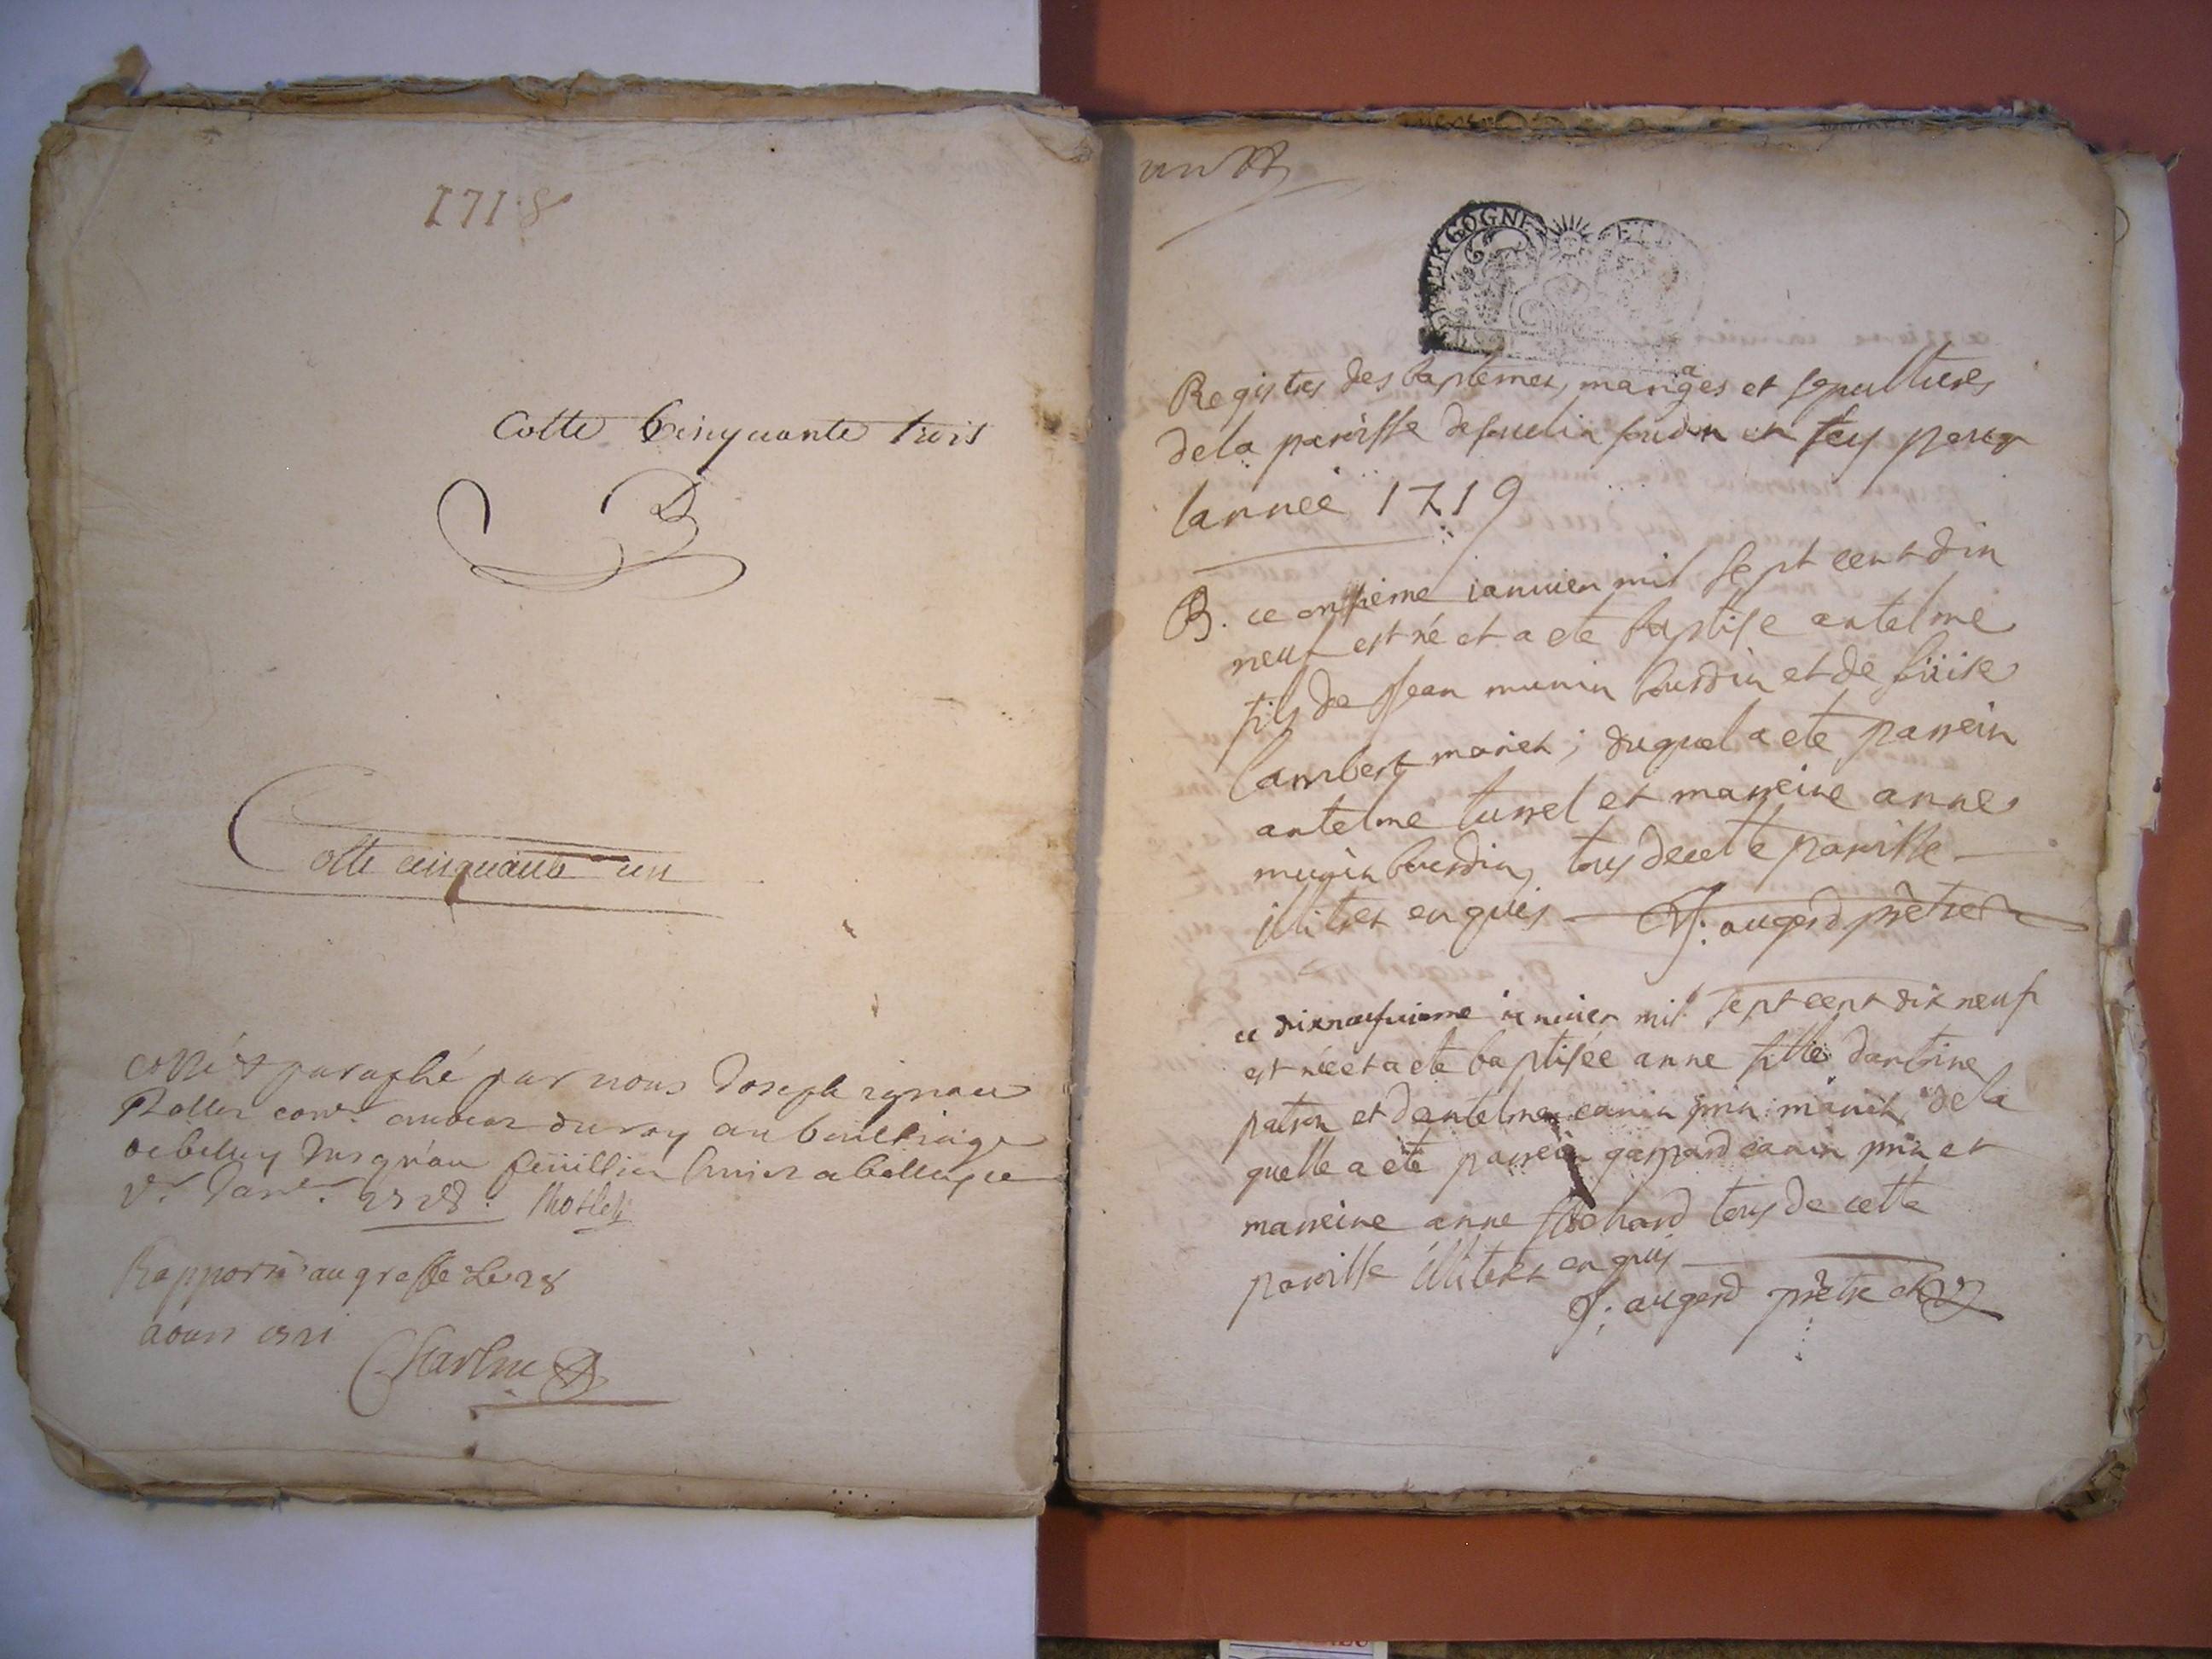 1718
Cotte Cinquante trois
Cotte cinquante un
Cotté et paraphé par nous Joseph ignace
conr. du roy au bailliage
de belley jusqu'au feuillier a belley ce
Rapporté au greffe le 28
aoust 1721
un
BOURGOGNE
Registres des baptemes, mariages et sepultures
de la paroisse de pour
lannee 1719
B. ce onsieme ianvier mil sept cent dix
neuf est né et a ete baptise antelme
fils de Jean munin bourdin et de
lambert mariez; duquel a ete parrein
antelme turrel et marreine anne
munin bourdin, tous de cete paroisse
illitres enquis J. augerd prêtre
ce dixneufvieme ianvier mil sept cent dix neuf
est née et a ete baptisée anne fille dantoine
et dantelme mariez de la
quelle a eté parrein gaspard et
marreine anne tous de cette
paroisse illitres enquis
J. augerd prêtre